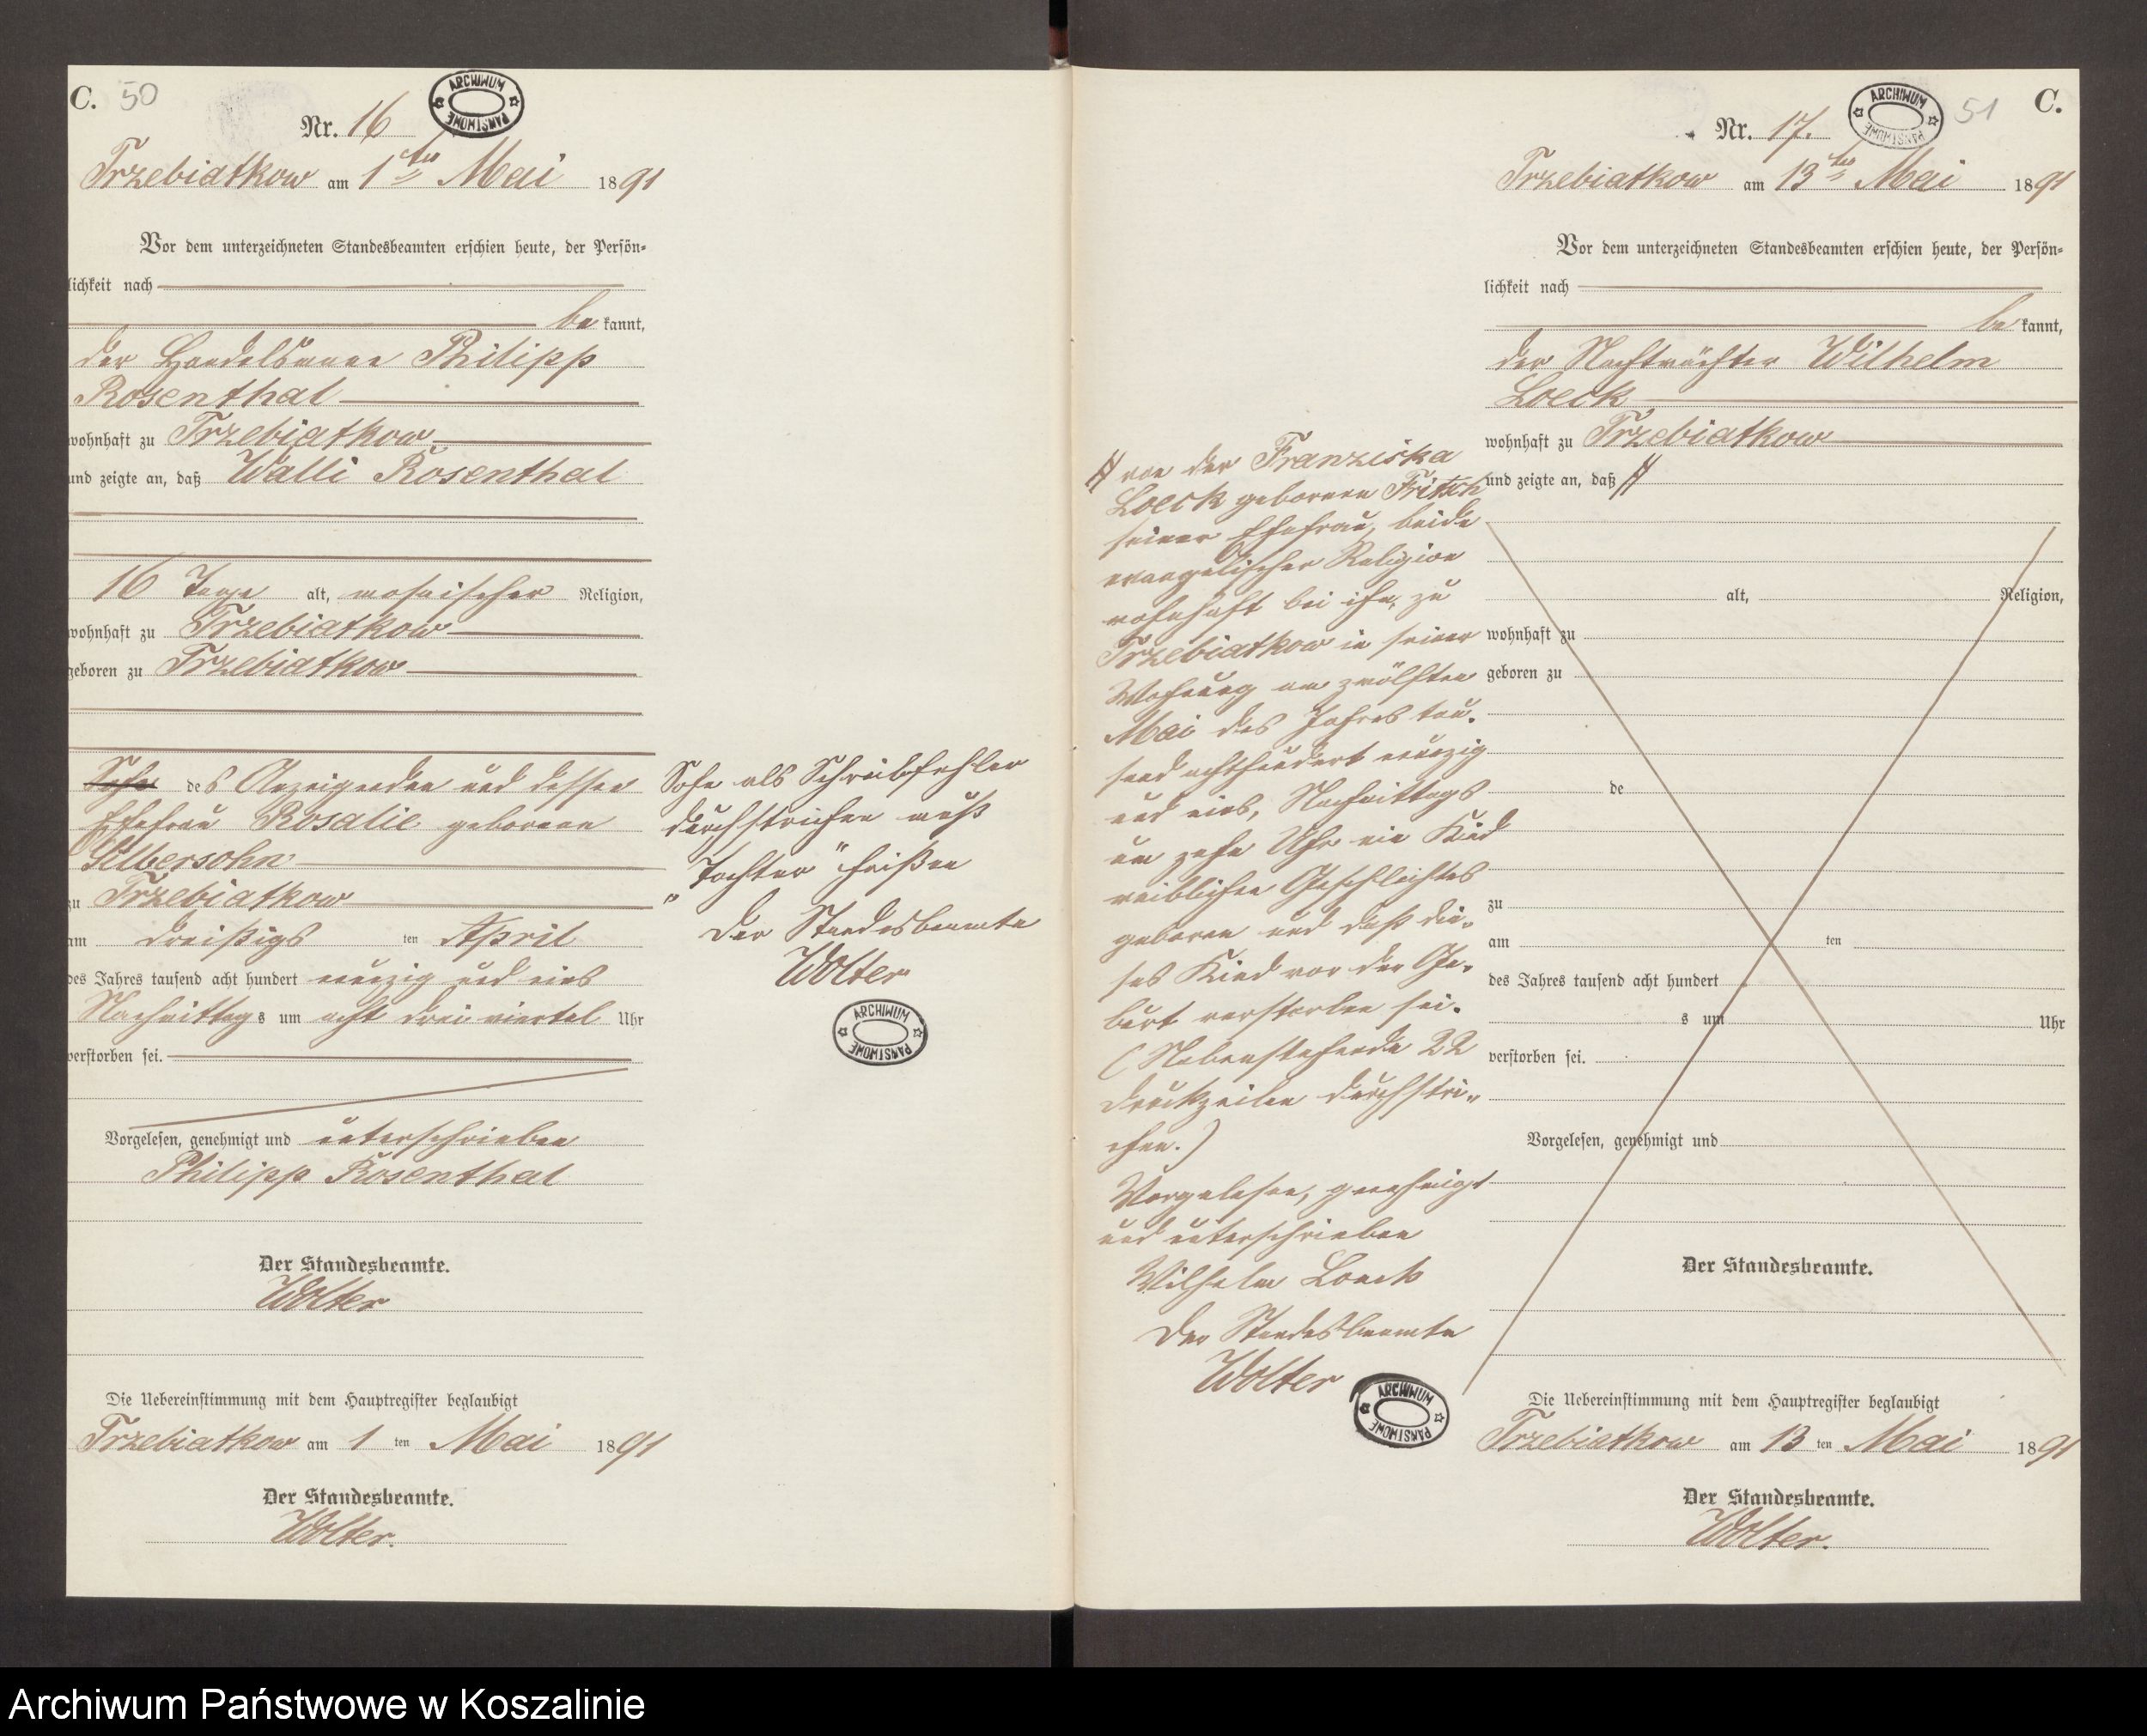 C. 50
ARCHIWUM PAŃSTWOWE
Nr. 16
Trzebiatkow am 1ten Mai 1891
Vor dem unterzeichneten Standesbeamten erschien heute, der Persön-
lichkeit nach
be kannt,
der Handelsmann Philipp
Rosenthal
wohnhaft zu Trzebiatkow
und zeigte an, daß Walli Rosenthal
16 Tage alt, mosaischer Religion,
wohnhaft zu Trzebiatkow
geboren zu Trzebiatkow
Sohn des Anzeigenden und dessen
Ehefrau Rosalie geborenen
Silbersohn
zu Trzebiatkow
am dreißigs ten April
des Jahres tausend acht hundert neunzig und eins
Nachmittags um acht drei viertel Uhr
verstorben sei.
Vorgelesen, genehmigt und unterschrieben
Philipp Rosenthal
Der Standesbeamte.
Wolter
Die Uebereinstimmung mit dem Hauptregister beglaubigt
Trzebiatkow am 1 ten Mai 1891
Der Standesbeamte.
Wolter.
Sohn als Schreibfehler
durchstrichen muß
„Tochter" heißen
Der Standesbeamte
Wolter
ARCHIWUM PAŃSTWOWE
C.
51
ARCHIWUM PAŃSTWOWE
Nr. 17.
Trzebiatkow am 13ten Mai 1891
Vor dem unterzeichneten Standesbeamten erschien heute, der Persön-
lichkeit nach
be kannt,
der Nachtwächter Wilhelm
Loeck
wohnhaft zu Trzebiatkow
und zeigte an, daß
von der Franziska
Loeck geborenen Fritsch
seiner Ehefrau, beide
evangelischer Religion
wohnhaft bei ihm, zu
Trzebiatkow in seiner
Wohnung am zwölften
Mai des Jahres tau-
send achthundert neunzig
und eins, Nachmittags
um zehn Uhr ein Kind
weiblichen Geschlechtes
geboren und daß die-
ses Kind vor der Ge-
burt verstorben sei.
(Nebenstehende 22
Druckzeilen durchstri-
chen.)
Vorgelesen, genehmigt
und unterschrieben
Wilhelm Loeck
Der Standesbeamte
Wolter
ARCHIWUM PAŃSTWOWE
alt, Religion,
wohnhaft zu
geboren zu
de
zu
am ten
des Jahres tausend acht hundert
s um Uhr
verstorben sei.
Vorgelesen, genehmigt und
Der Standesbeamte.
Die Uebereinstimmung mit dem Hauptregister beglaubigt
Trzebiatkow am 13 ten Mai 1891
Der Standesbeamte.
Wolter.
Archiwum Państwowe w Koszalinie